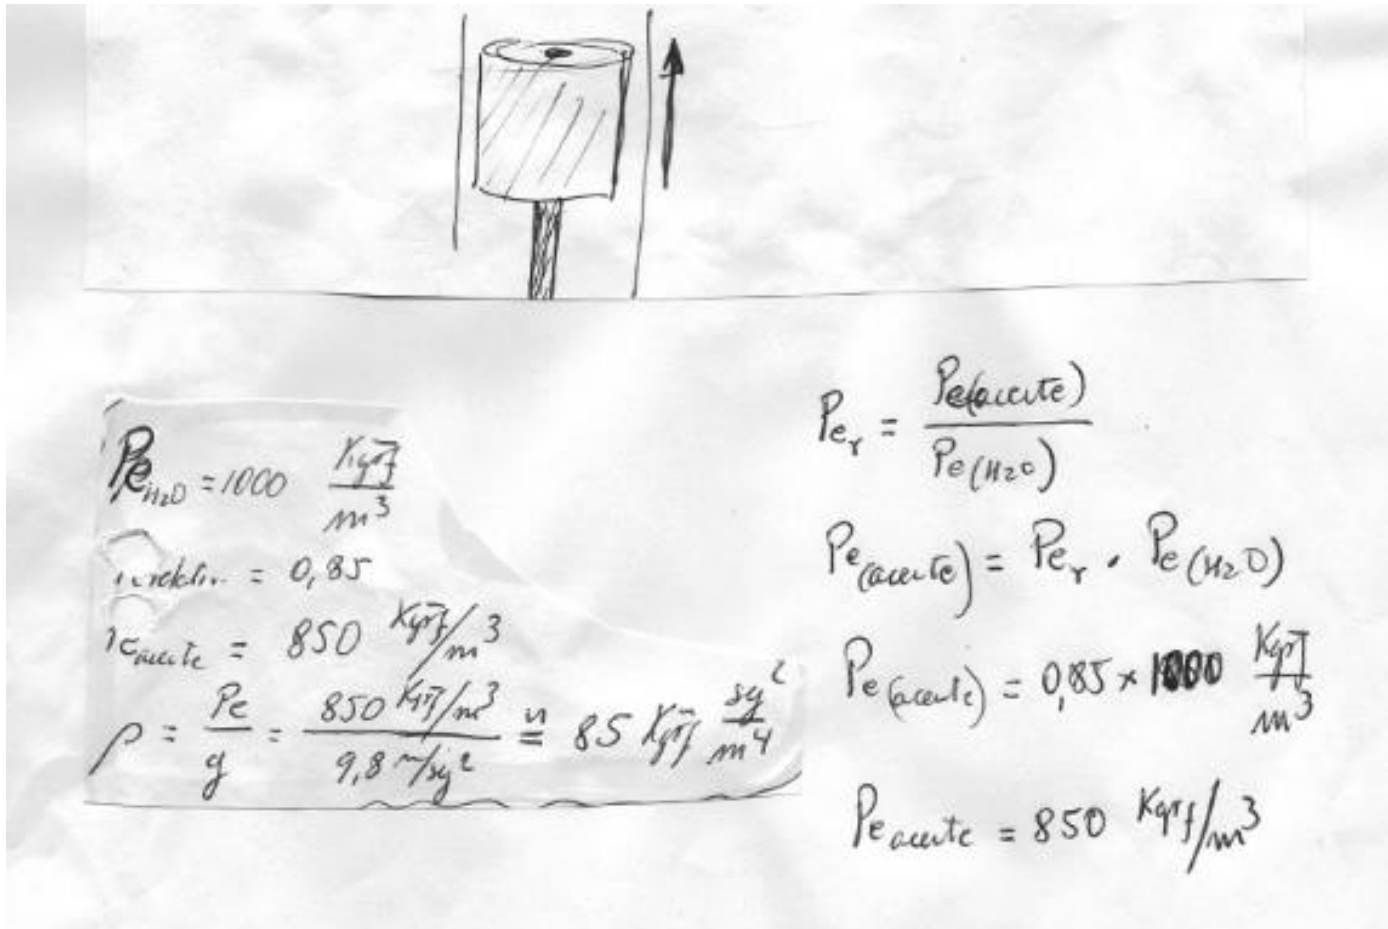 Pe H₂O = 1000 Kgrf/m³
= 0,85
Pe aceite = 850 Kgrf/m³
ρ = Pe/g = 850 Kgrf/m³ / 9,8 m/sg² ≅ 85 Kgrf sg²/m⁴
Pe r = Pe(aceite) / Pe(H₂O)
Pe(aceite) = Pe r . Pe(H₂O)
Pe(aceite) = 0,85 x 1000 Kgrf/m³
Pe aceite = 850 Kgrf/m³